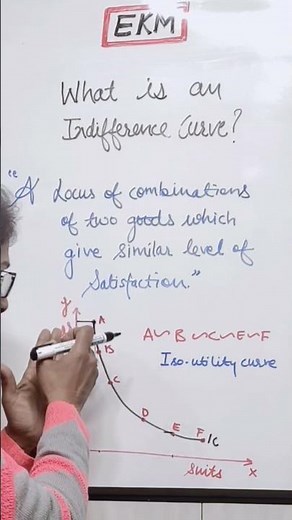 EKM
What is an
Indifference Curve?
"A Locus of combinations
of two goods which
give similar level of
Satisfaction."
y
A
B
C
D
E
F
IC
A~B~C~E~F
Iso-utility curve
Suits
x